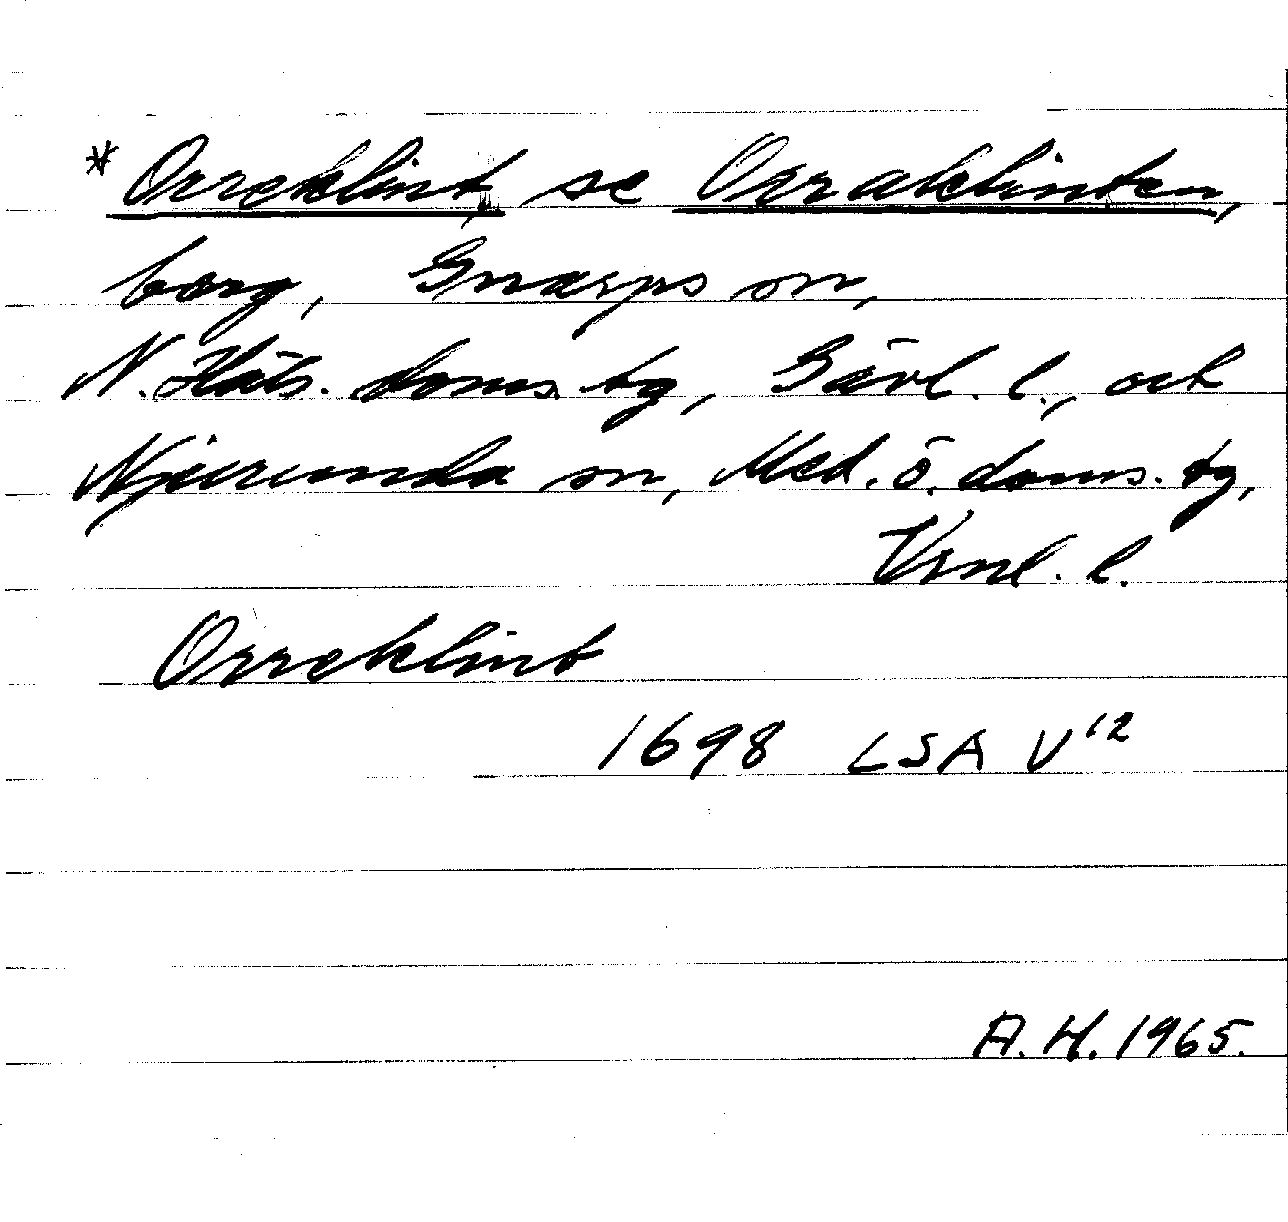 * Orreklint, se Orraklinten,
berg, Gnarps sn,
N. Häls. doms. tg, Gävl. l., och
Njurunda sn, Med. ö. doms. tg,
Vsnl. l.
Orreklint
1698 LSA V12
A. H. 1965.